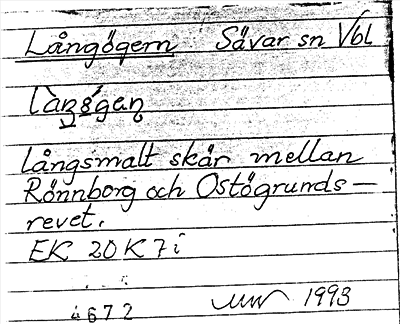 Långögern Sävar sn Vbl
långsmalt skär mellan
Rönnborg och Ostögrunds—
revet.
EK 20 K 7 i
4672 1993